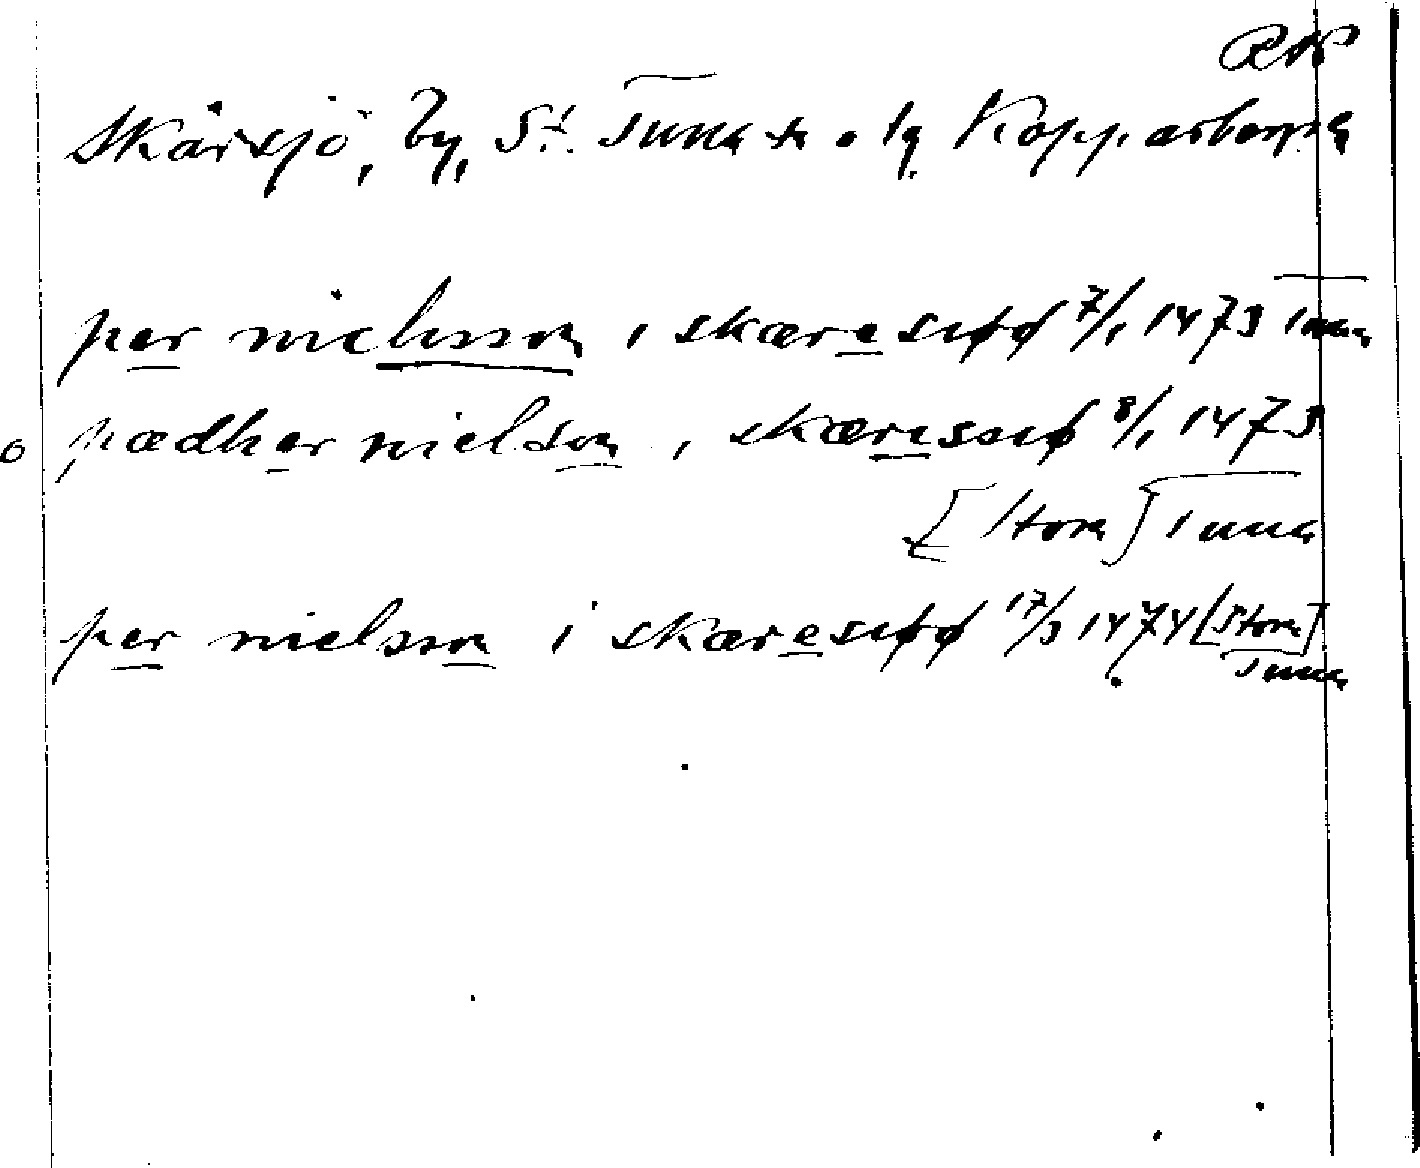 RAP
Skårsjö, by, St. Tuna sn o. lg Kopparbergs
per nielsson i skæresiøø 7/1 1473 Tuna
o pædher nielson i skæressiø 8/1 1473
[Stora] Tuna
per nielsson i skæresiøø 17/3 1474 [Stora]
Tuna